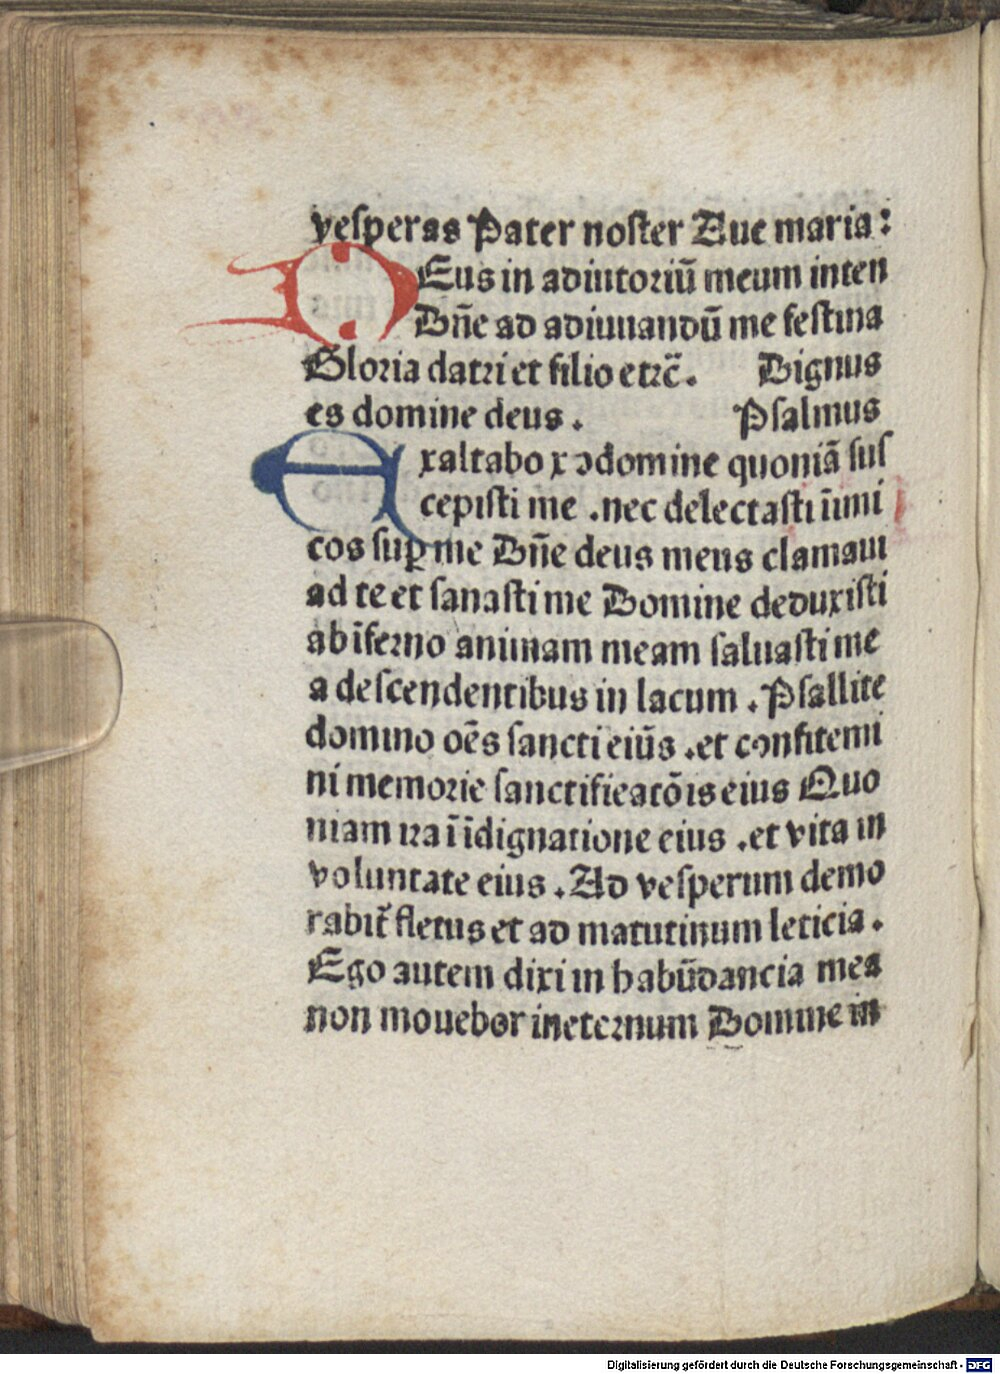 vesperas Pater noster Aue maria:
DEus in adiutoriū meum inten
Dñe ad adiuuandū me festina
Gloria datri et filio etc̃. Dignus
es domine deus. Psalmus
Exaltabo x ꝯdomine quoniā suſ
cepisti me .nec delectasti ūimi
cos suꝑ me Dñe deus meus clamaui
ad te et sanasti me Domine deduxisti
ab īferno animam meam saluasti me
a descendentibus in lacum .Psallite
domino oēs sancti eiūs .et confitemi
ni memorie sanctificatōis eius Quo
niam ira ī īdignatione eius .et vita in
voluntate eius .Ad vesperum demo
rabit᷑ fletus et ad matutinum leticia.
Ego autem dixi in habūdancia mea
non mouebor in eternum Domine in
Digitalisierung gefördert durch die Deutsche Forschungsgemeinschaft - DFG